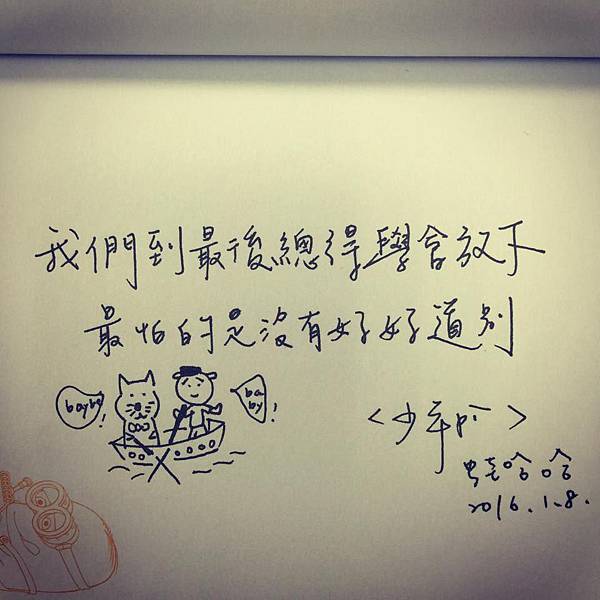 我們到最後總得學會放下
最怕的是沒有好好道別
baybe!
ba
by!
<少年pi>
蛙哈哈
2016.1.8.